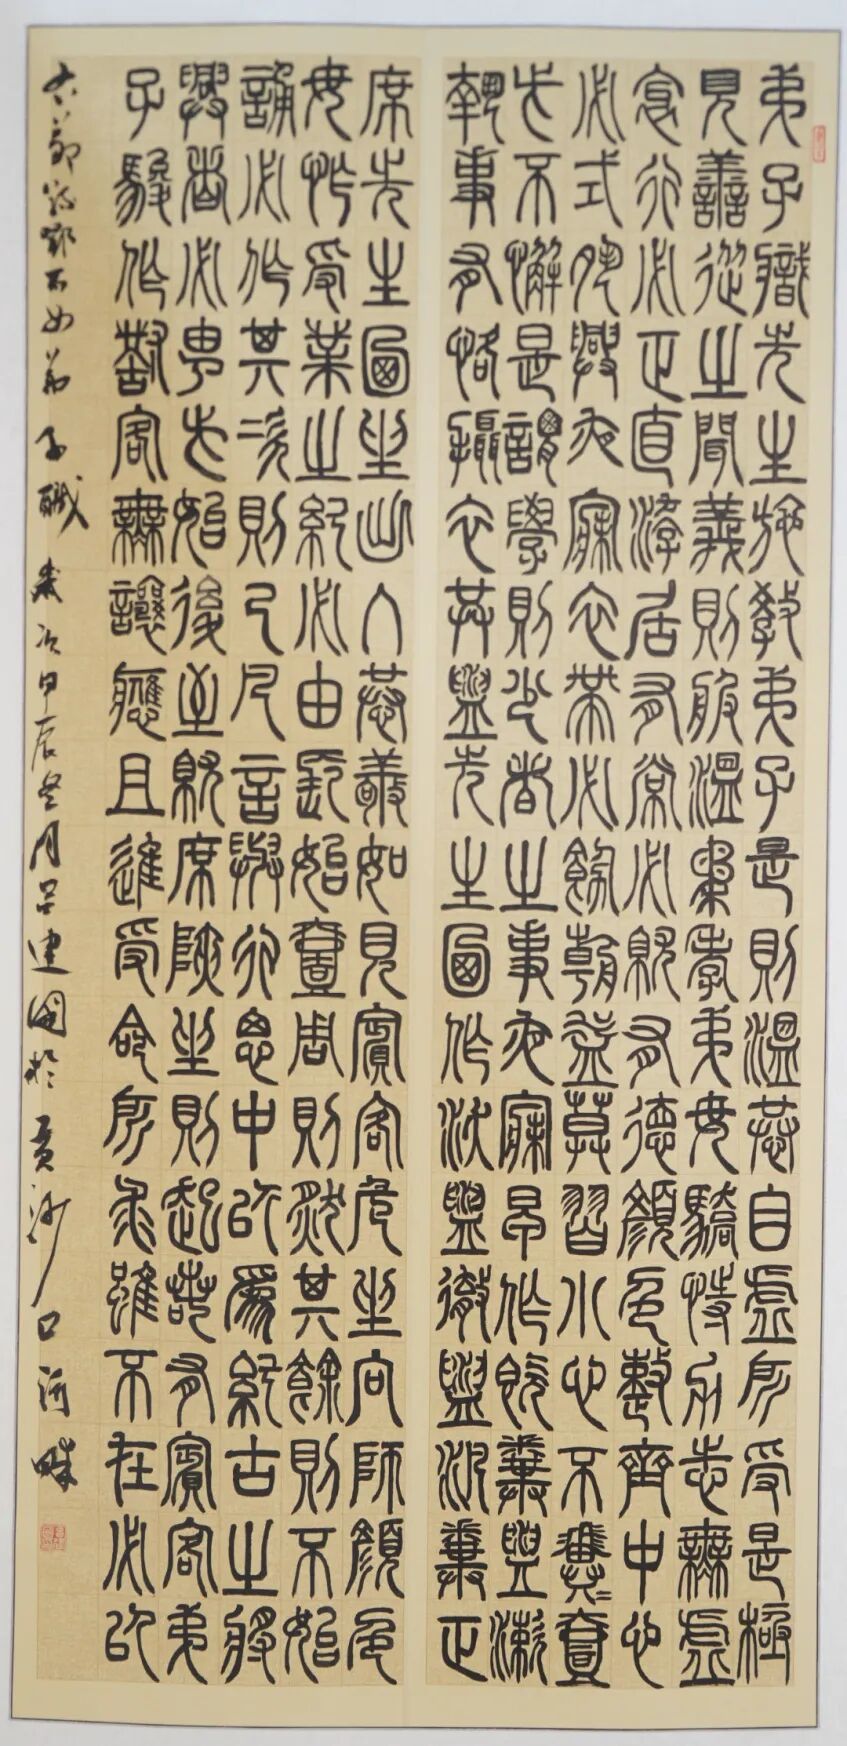 弟子職先生施教弟子是則溫恭自虛所受是極
見善從之聞義則服溫柔孝弟毋驕恃力志無虛
衺行必正直游居有常必就有德顏色整齊中心
必式夙興夜寐衣帶必飾朝益莫習小心不翼〻壹
此不懈是謂學則少者之事夜寐早作既糞盥漱
執事有恪攝衣共盥先生乃作沃盥徹盥汎糞正
席先生乃坐出入恭敬如見賓客危坐向師顏色
毋怍受業之紀必由長始壹周則然其餘則不始
誦必作其次則已凡言與行思中以為紀古之將
興者必由此始後至就席陜坐則起若有賓客弟
子駿作對客無讓應且進受命所求雖不在必以
右節臨鄧石如弟子職歲次甲辰冬月呂建國於黃沙口河畔